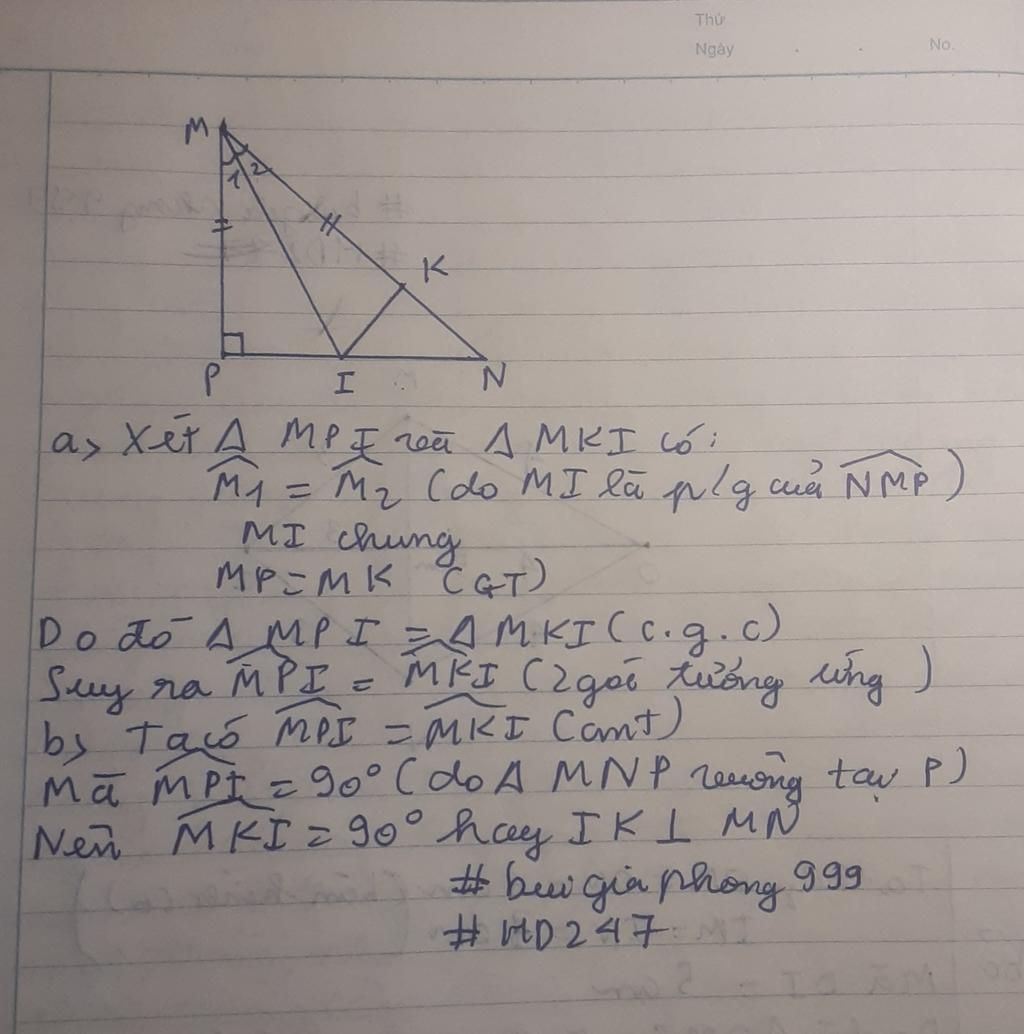 Thứ
Ngày . . No.
M
1 2
K
P I N
a, Xét Δ MPI và Δ MKI có:
M1 = M2 (do MI là p/g của NMP)
MI chung
MP = MK (GT)
Do đó Δ MPI = Δ MKI (c.g.c)
Suy ra MPI = MKI (2 góc tương ứng)
b, Ta có MPI = MKI (cmt)
Mà MPI = 90° (do Δ MNP vuông tại P)
Nên MKI = 90° hay IK ⊥ MN
# buigiaphong999
# HD247